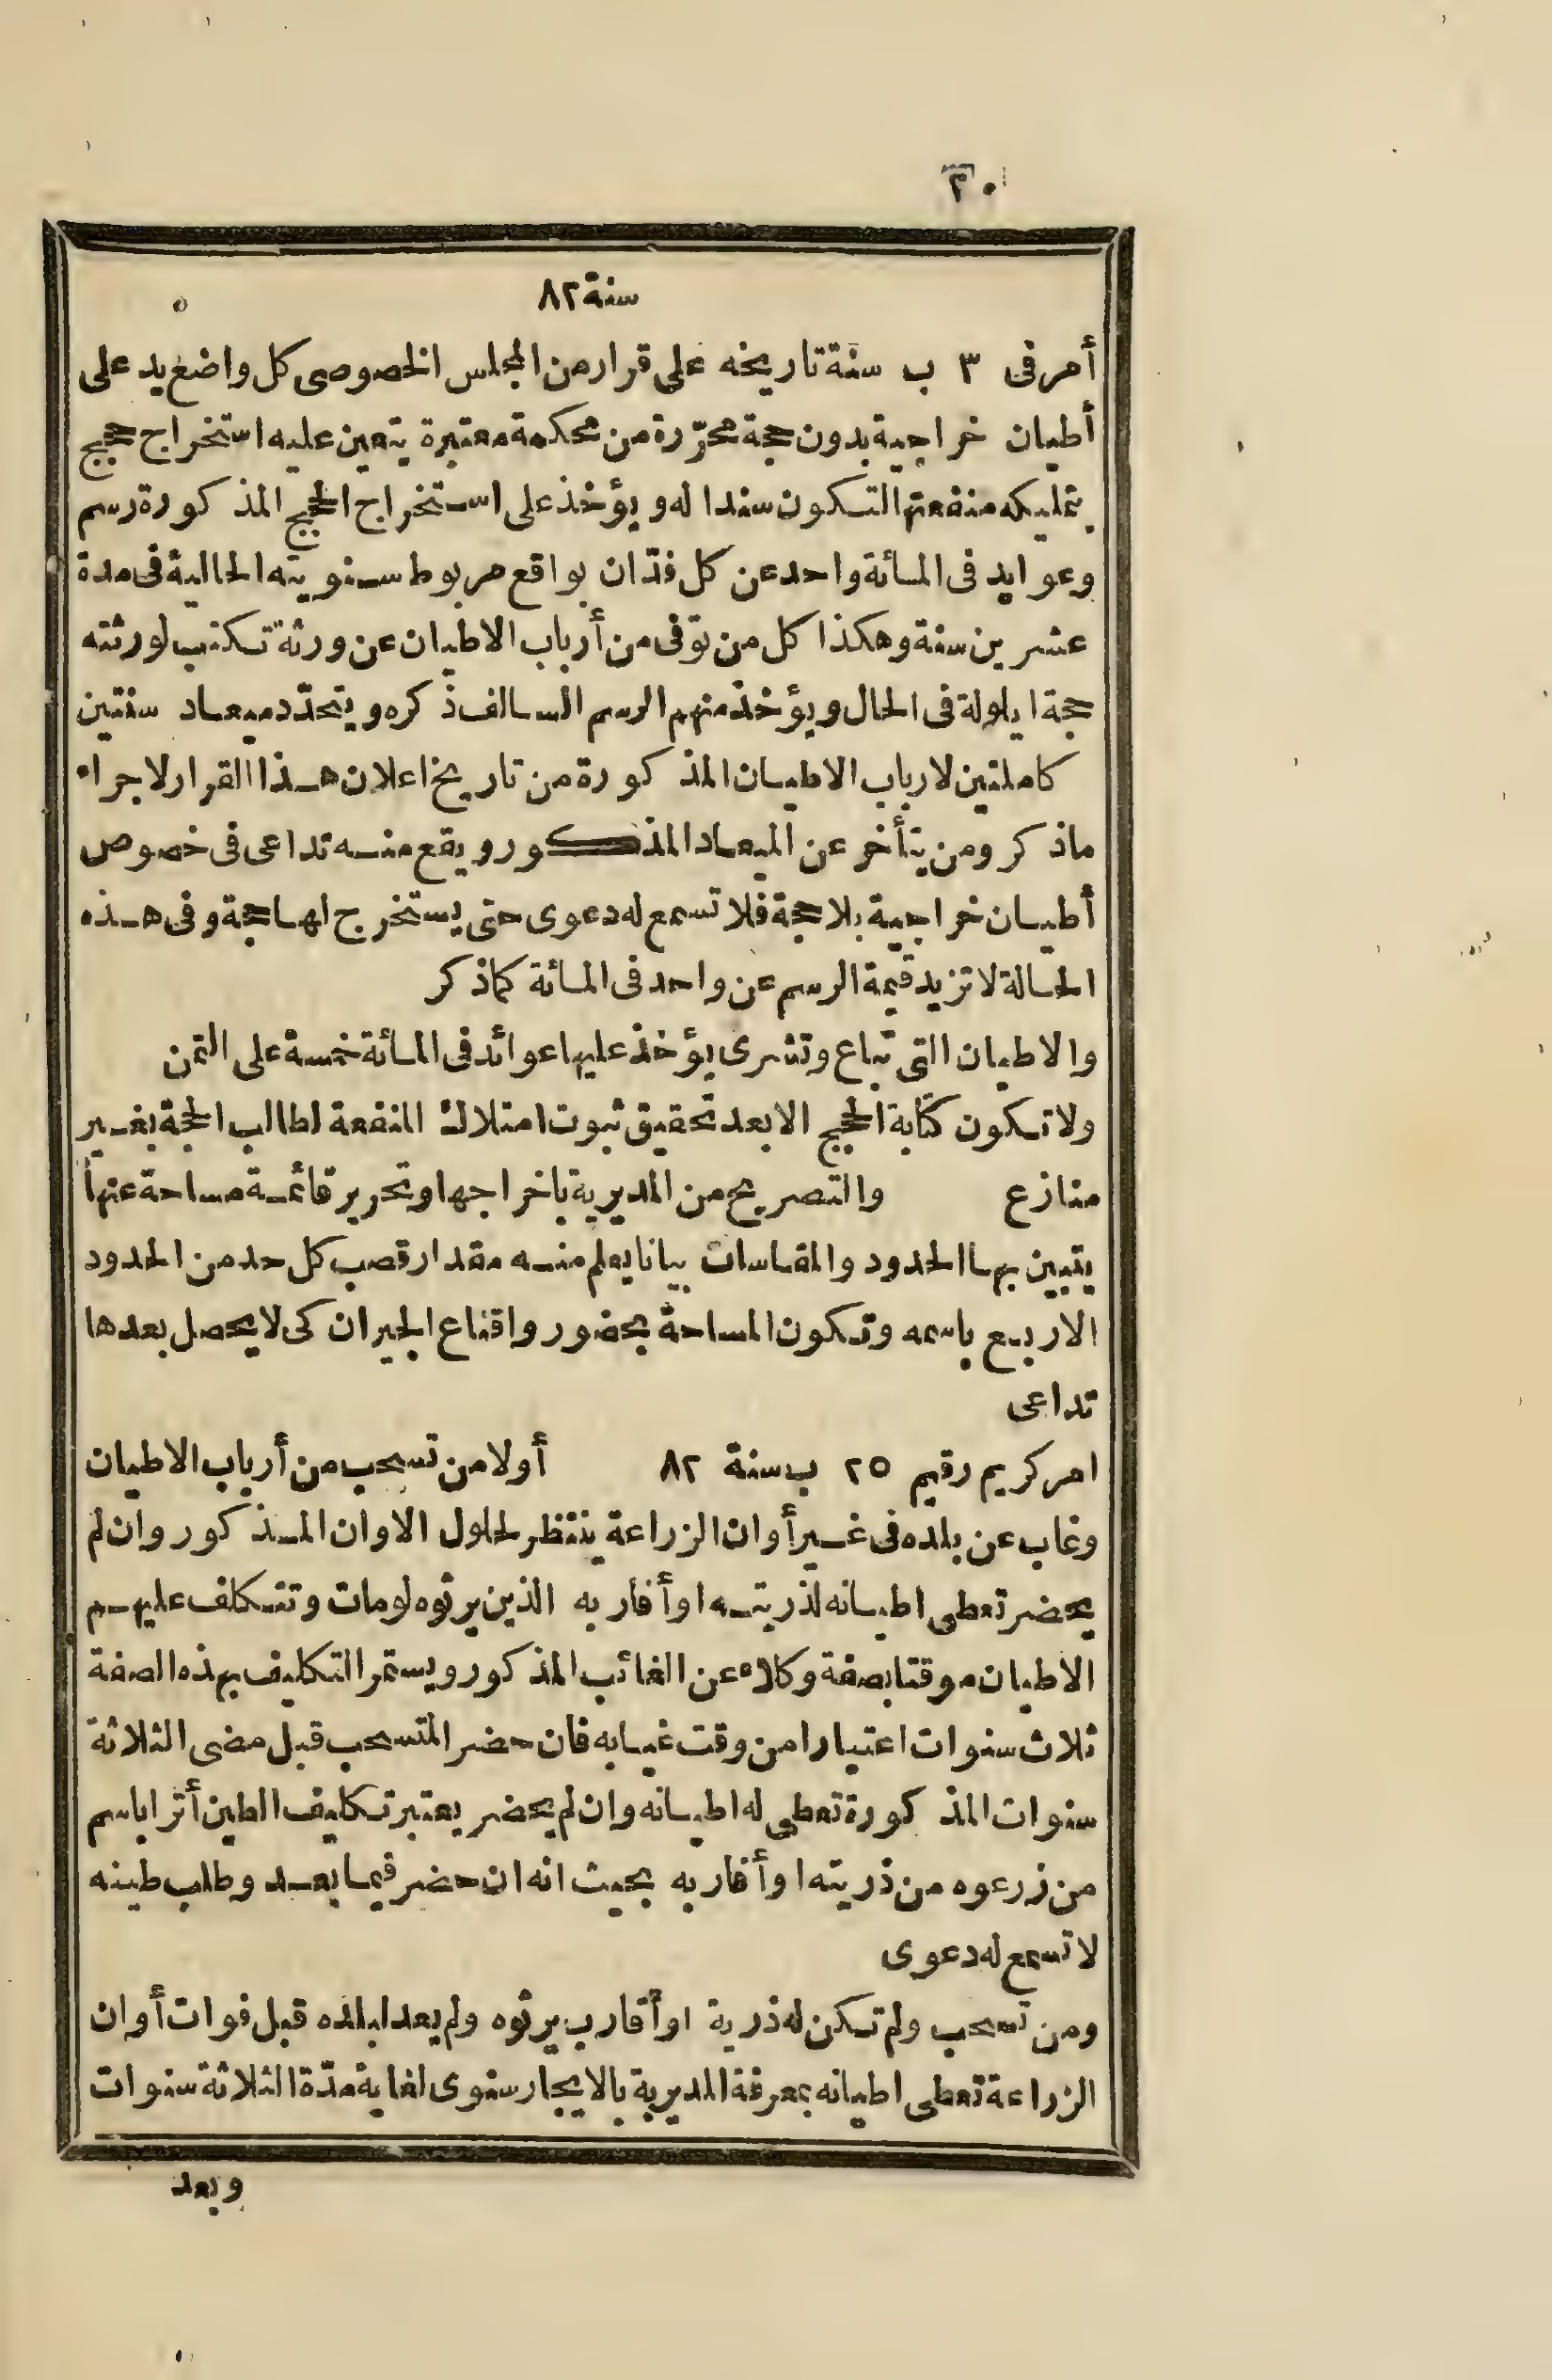 ٣٠
سنة ٨٢
أمر فى ٣ ب سنة تاريخه على قرار من المجلس الخصوصى كل واضع يد على
أطيان خراجية بدون حجة محرّرة من محكمة معتبرة يتعين عليه استخراج حجج
بتمليكه منفعتها لتكون سندا له ويؤخذ على استخراج الحجج المذكورة رسم
وعوايد فى المائة واحد عن كل فدّان بواقع مربوط سنويته الحالية فى مدة
عشرين سنة وهكذا كل من توفى من أرباب الاطيان عن ورثة تكتب لورثته
حجة ايلولة فى الحال ويؤخذ منهم الرسم السالف ذكره ويتحدّد ميعاد سنتين
كاملتين لارباب الاطيان المذكورة من تاريخ اعلان هذا القرار لاجراء
ماذكر ومن يتأخر عن الميعاد المذكور ويقع منه تداعى فى خصوص
أطيان خراجية بلا حجة فلا تسمع له دعوى حتى يستخرج لها حجة وفى هذه
الحالة لا تزيد قيمة الرسم عن واحد فى المائة كماذكر
والاطيان التى تباع وتشرى يؤخذ عليها عوائد فى المائة خمسة على الثمن
ولا تكون كتابة الحجج الا بعد تحقيق ثبوت امتلاك المنفعة لطالب الحجة بغير
منازع والتصريح من المديرية باخراجها وتحرير قائمة مساحة عنها
يتبين بها الحدود والمقاسات بيانا يعلم منه مقدار قصب كل حد من الحدود
الاربع باسمه وتكون المساحة بحضور واقناع الجيران كى لا يحصل بعدها
تداعى
امر كريم رقيم ٢٥ ب سنة ٨٢ أولا من تسحب من أرباب الاطيان
وغاب عن بلده فى غير أوان الزراعة ينتظر لحلول الاوان المذكور وان لم
يحضر تعطى اطيانه لذريته او أقاربه الذين يرثوه لومات وتتكلف عليهم
الاطيان موقتا بصفة وكلاء عن الغائب المذكور ويستمر التكليف بهذه الصفة
ثلاث سنوات اعتبارا من وقت غيابه فان حضر المتسحب قبل مضى الثلاثة
سنوات المذكورة تعطى له اطيانه وان لم يحضر يعتبر تكليف الطين أثرا باسم
من زرعوه من ذريته او أقاربه بحيث انه ان حضر فيما بعد وطلب طينه
لا تسمع له دعوى
ومن تسحب ولم تكن له ذرية او أقارب يرثوه ولم يعد لبلده قبل فوات أوان
الزراعة تعطى اطيانه بمعرفة المديرية بالايجار سنوى لغاية مدّة الثلاثة سنوات
وبعد